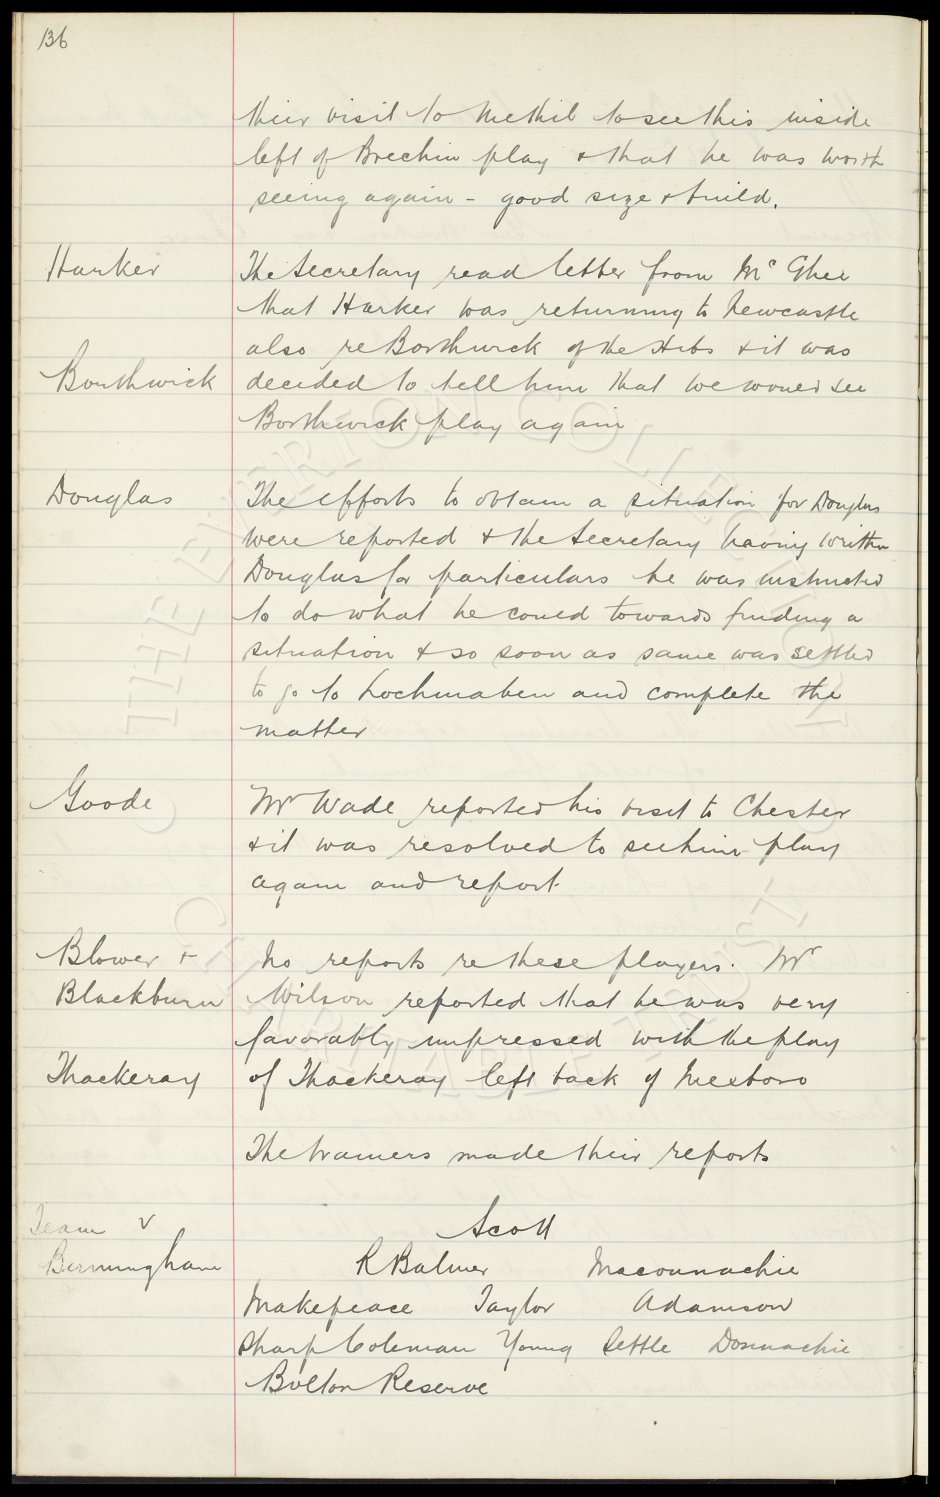 136
their visit to Methil to see this inside
left of Brechin play & that he was worth
seeing again - good size & build.
Harker
The Secretary read letter from McGhee
that Harker was returning to Newcastle
also re Borthwick of the Hibs & it was
Bouthwick
decided to tell him that we would see
Borthwick play again
Douglas
The efforts to obtain a situation for Douglas
were reported & the Secretary having written
Douglas for particulars he was instructed
to do what he could towards finding a
situation & so soon as same was settled
to go to Lochmaben and complete the
matter
Goode
Mr Wade reported his visit to Chester
& it was resolved to see him play
again and report.
Blower &
No reports re these players. Mr
Blackburn
Wilson reported that he was very
favorably impressed with the play
Thackeray
of Thackeray left back of Mexboro
The trainers made their reports
Team v
Birmingham
Scott
R Balmer Maconnachie
Makepeace Taylor Adamson
Sharp Coleman Young Settle Donnachie
Bolton Reserve
THE EVERTON COLLECTION
CHARITABLE TRUST
©